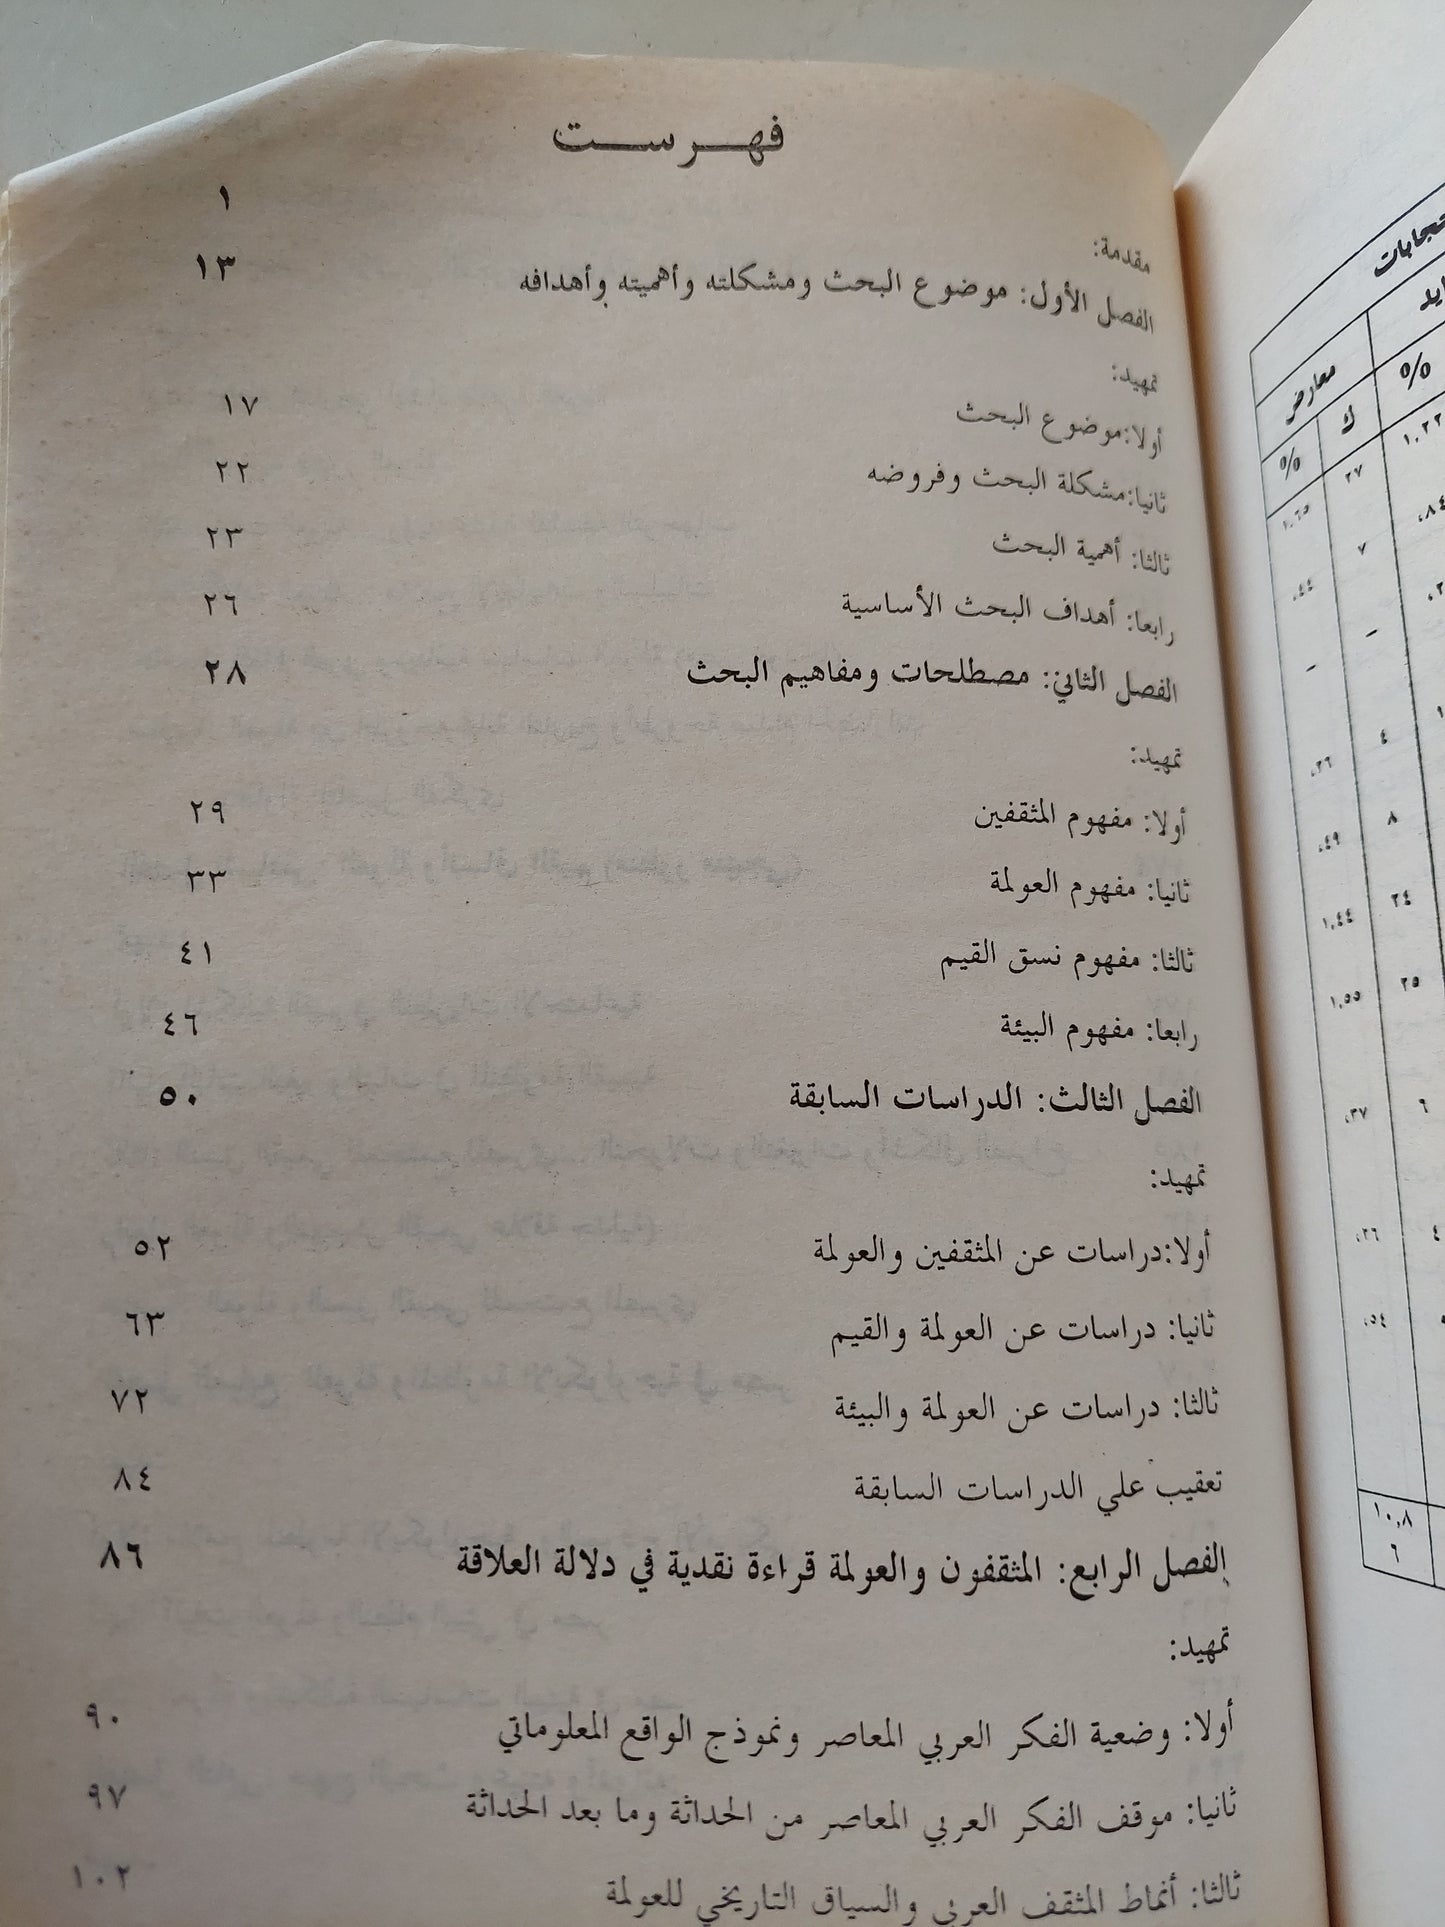 فهرست
مقدمة: ١
الفصل الأول: موضوع البحث ومشكلته وأهميته وأهدافه ١٣
تمهيد:
أولا:موضوع البحث ١٧
ثانيا:مشكلة البحث وفروضه ٢٢
ثالثا: أهمية البحث ٢٣
رابعا: أهداف البحث الأساسية ٢٦
الفصل الثاني: مصطلحات ومفاهيم البحث ٢٨
تمهيد:
أولا: مفهوم المثقفين ٢٩
ثانيا: مفهوم العولمة ٣٣
ثالثا: مفهوم نسق القيم ٤١
رابعا: مفهوم البيئة ٤٦
الفصل الثالث: الدراسات السابقة ٥٠
تمهيد:
أولا:دراسات عن المثقفين والعولمة ٥٢
ثانيا: دراسات عن العولمة والقيم ٦٣
ثالثا: دراسات عن العولمة والبيئة ٧٢
تعقيب علي الدراسات السابقة ٨٤
الفصل الرابع: المثقفون والعولمة قراءة نقدية في دلالة العلاقة ٨٦
تمهيد:
أولا: وضعية الفكر العربي المعاصر ونموذج الواقع المعلوماتي ٩٠
ثانيا: موقف الفكر العربي المعاصر من الحداثة وما بعد الحداثة ٩٧
ثالثا: أنماط المثقف العربي والسياق التاريخي للعولمة ١٠٢
معارض
% ك %
٢٧ ١,٦٥
٧ ,٤٤
- -
٤ ,٢٦
٨ ,٤٩
٢٤ ١,٤٤
٢٥ ١,٥٥
٦ ,٣٧
٤ ,٢٦
,٥٤
١٠,٨
٦